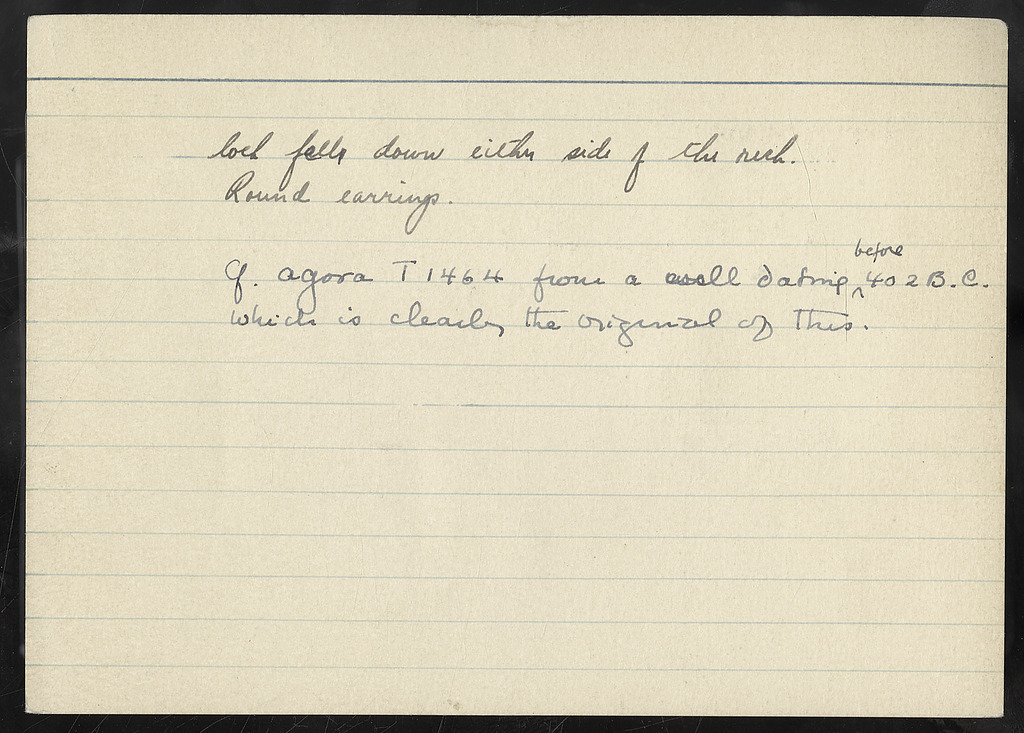 lock falls down either side of the neck.
Round earrings.
Cf. agora T 1464 from a well dating before 402 B.C.
which is clearly the original of this.